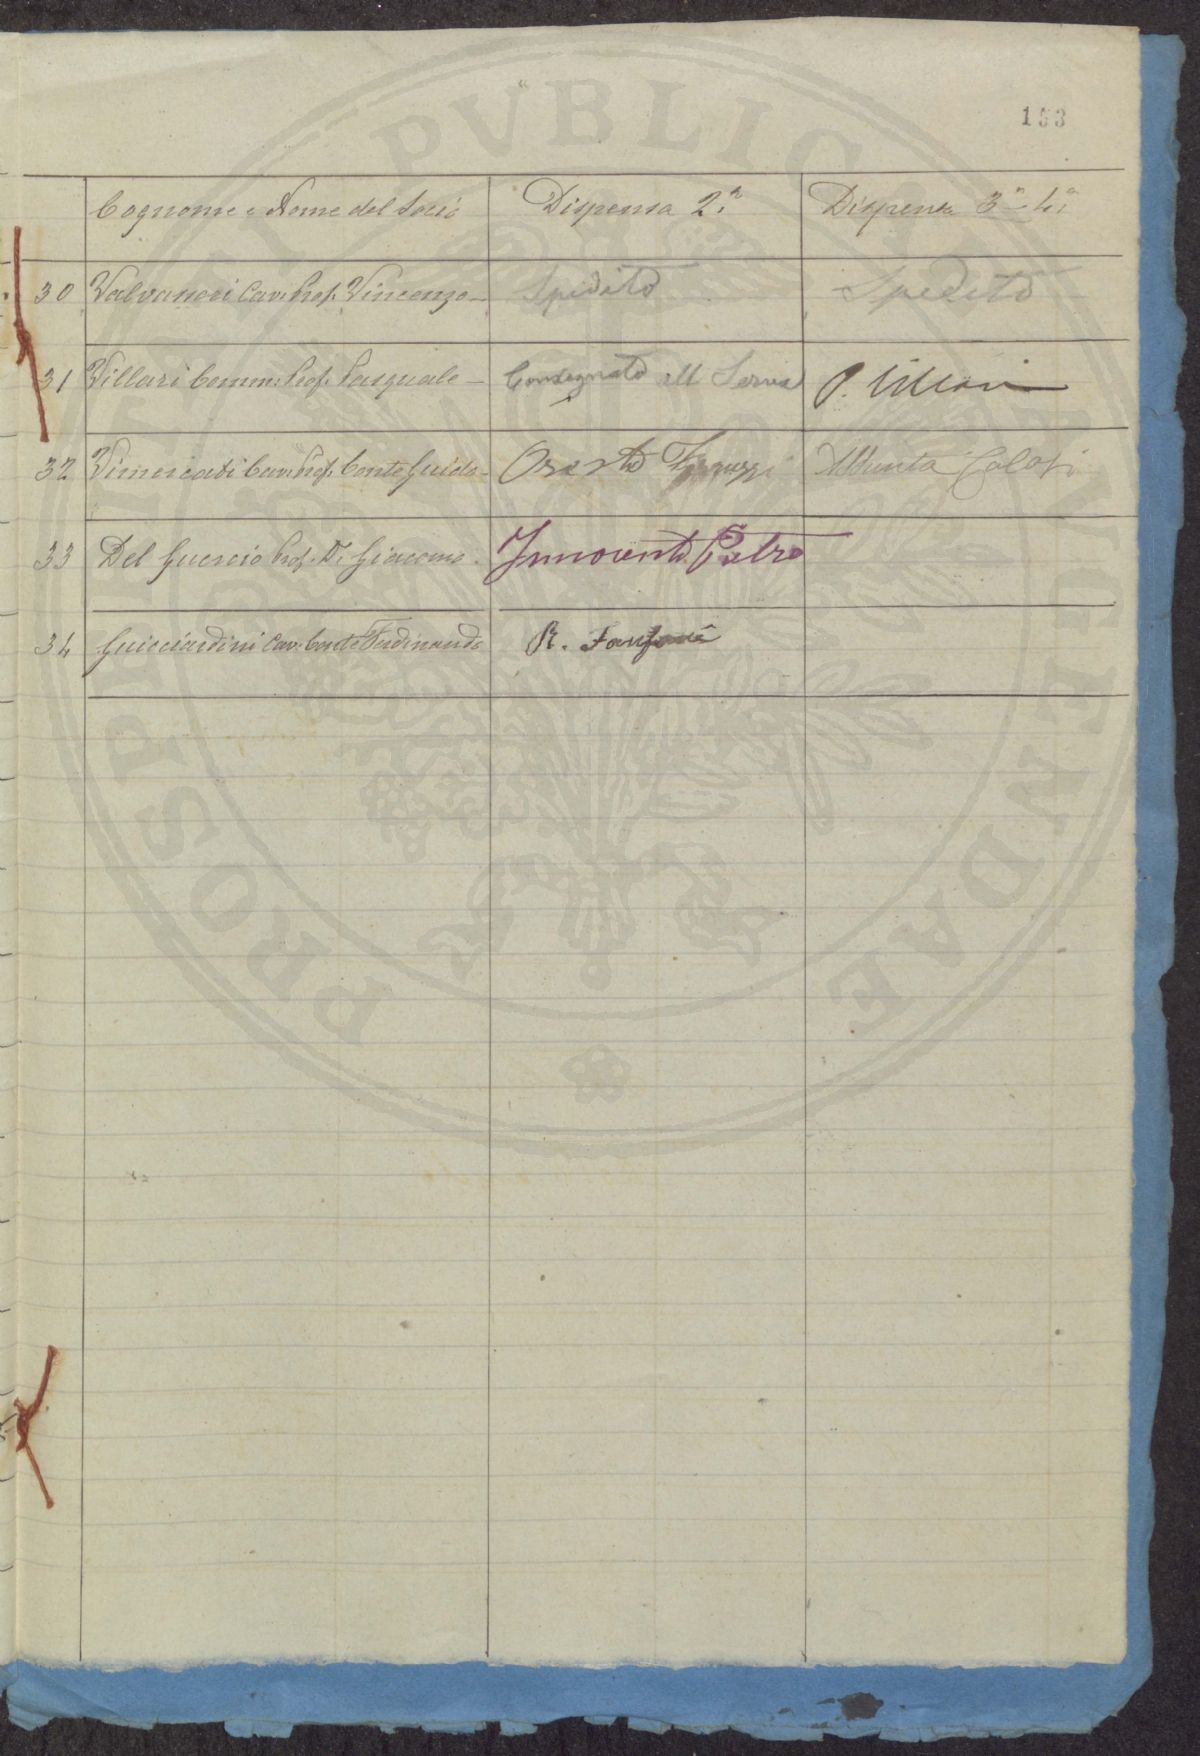 153
Cognome e Nome del Socio Dispensa 2.ª Dispensa 3ª 4ª
30 Valvasori Cav. Prof. Vincenzo Spedito Spedito
31 Villari Comm. Prof. Pasquale Consegnato alla Serva P. Villari
32 Vimercati Cav. Prof. Conte Guido Oreste Assunta
33 Del Guercio Prof. Dr. Giacomo Innocenti Pietro
34 Guicciardini Cav. Conte Ferdinando R. Fanfani
PROSPERITATI PVBLICAE AVGENDAE